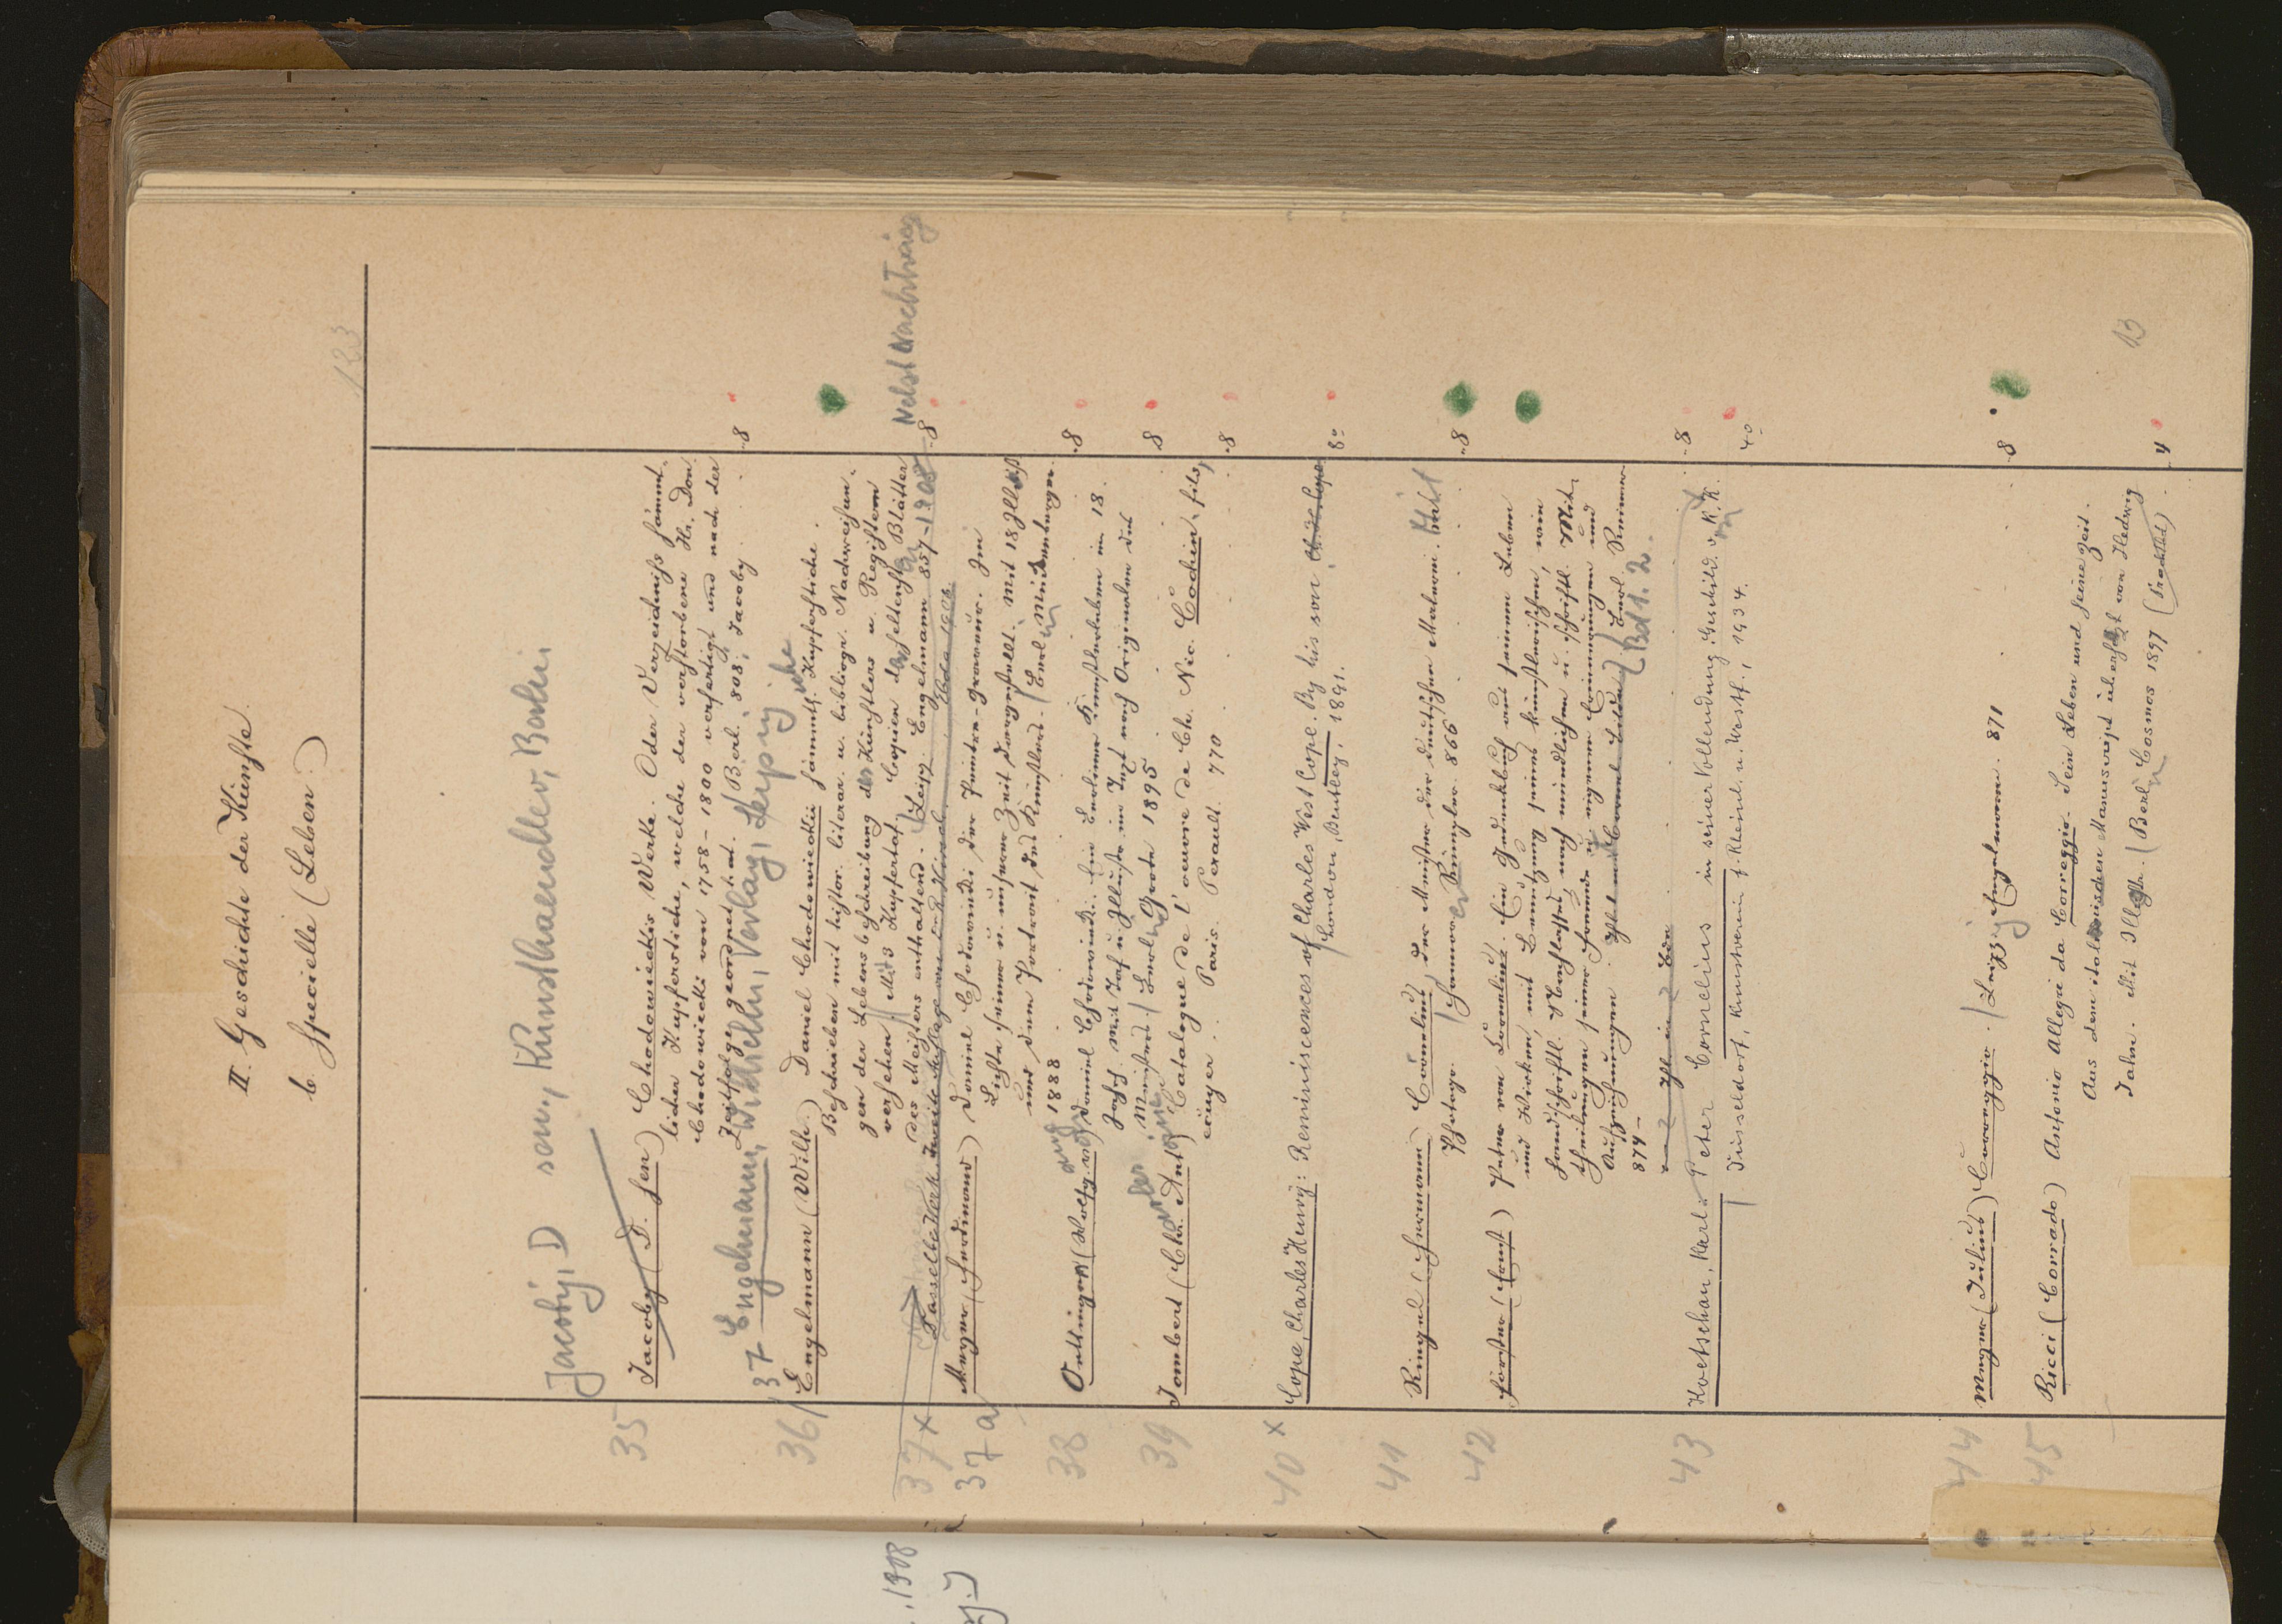 II. Geschichte der Künste.
b. Specielle (Leben.)
123
Jacoby, D sen., Kunsthaendler, Berlin.
35 Jacoby (D. sen) Chodowieckis Werke. Oder Verzeichniss sämmt-
licher Kupferstiche, welche der verstorbene Hr. Dan.
Chodowiecki von 1758-1800 verfertigt und nach der
Zeitfolge geordnet hat. Berl. 808; Jacoby 8
37 Engelmann, Wilhelm, Verlag, Leipzig
36 Engelmann (Wilh.) Daniel Chodowieckis sämmtl. Kupferstiche.
Beschrieben mit histor. literar. u. bibliogr. Nachweisun-
gen der Lebensbeschreibung des Künstlers u. Registern
versehen. Mit 3 Kupfertaf. Copien der seltensten Blätter
des Meisters enthaltend. Leipz. Engelmann 857-1908 8 Nebst Nachträg
37 x Dasselbe Werk. Zweite Auflage 1906.
37a Meyer (Ferdinand) Daniel Chodowiecki der Peintre-Graveur. Im
Lichte seiner u. unserer Zeit dargestellt. Mit 18 Ill
und dem Portrait des Künstlers. Berl
1888 8
38 Oettingen (Wolfg. von) Daniel Chodowiecki. Ein Berliner Künstlerleben im 18.
Jahrh. Mit Taf. u. Illustr. im Text nach Originalen des
Meisters. Berl Grote 1895 8
39 Jombert (Ch. Ant) Catalogue de l'oeuvre de Ch. Nic. Cochin, fils,
Paris. Perault. 770 8
40 x Cope, Charles Henry: Reminiscences of Charles West Cope. By his son
London, Bentley, 1891. 8°
41 Riegel (Herman) Cornelius, der Meister der deutschen Malerei. Mit
Photogr. Hannover Rümpler. 866 8
42 Förster (Ernst) Peter von Cornelius. Ein Gedenkbuch aus seinem Leben
und Wirken, mit Benutzung seines künstlerischen, wie
handschriftl. Nachlasses, nach mündlichen u. schriftl. Mit-
theilungen seiner Freunde u. eigenen Erinnerungen und
Aufzeichnungen. Berl. Reimer
874- Bd 1. 2. 8
43 Koetschau, Karl: Peter Cornelius in seiner Vollendung. Geschild. v. K. K.
Düsseldorf, Kunstverein f. Rheinl. u. Westf., 1934. 4°
44 Meyer (Julius) Correggio. Leipzig Engelmann. 871 8
45 Ricci (Corrado) Antonio Allegri da Correggio. Sein Leben und seine Zeit.
Aus dem italienischen Manuscript übersetzt von Hedwig
Jahn. Mit Illustr. Berl Cosmos 1897 4